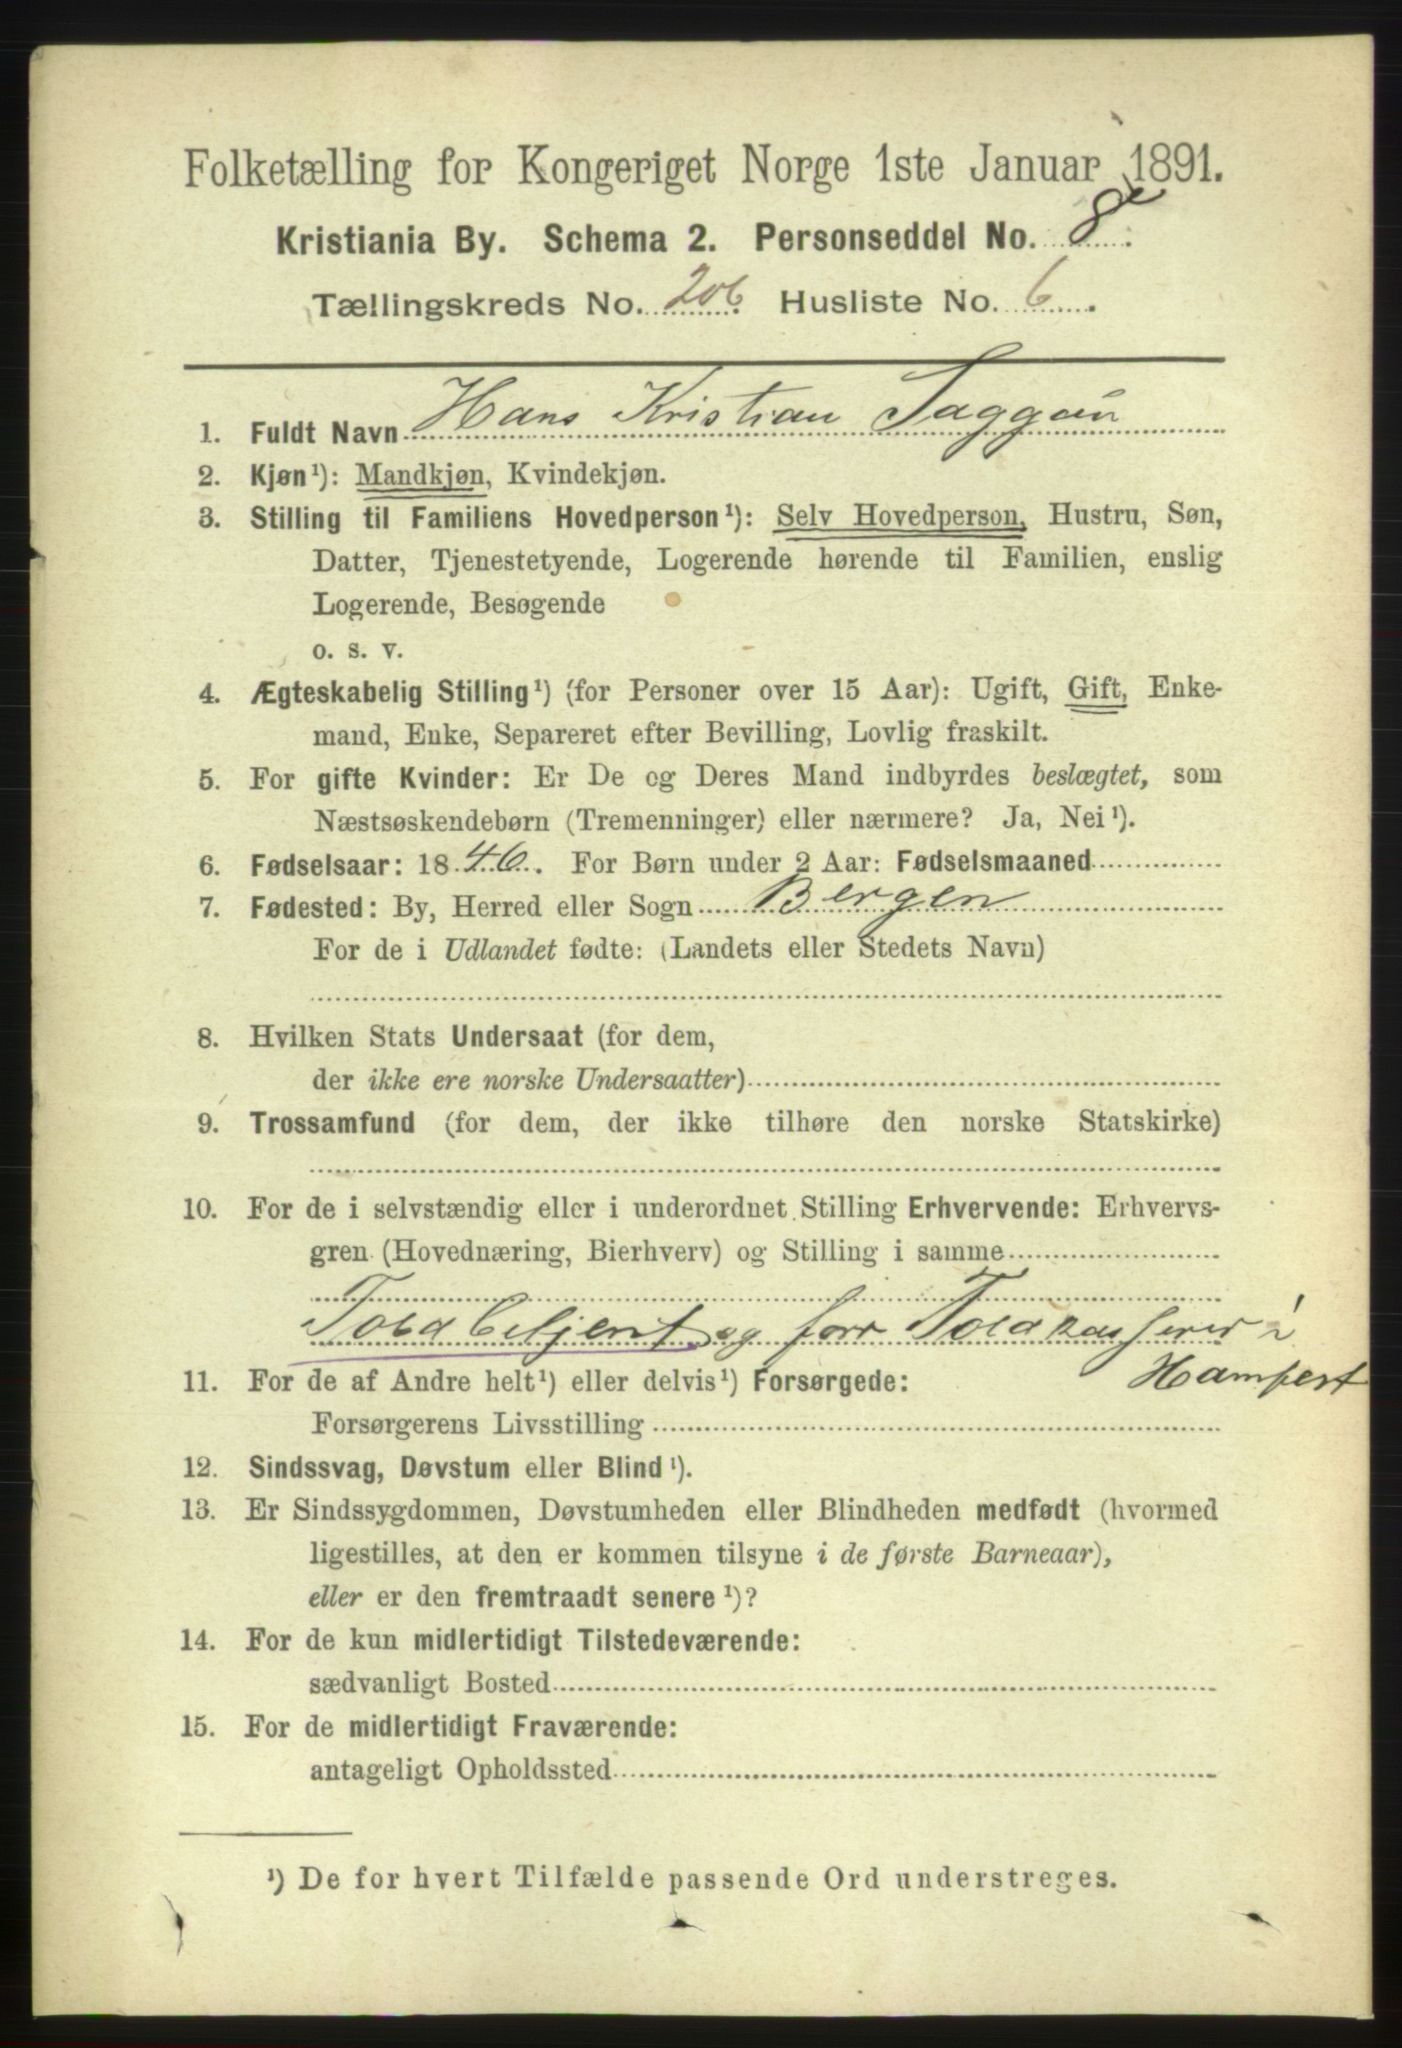 Folketælling for Kongeriget Norge 1ste Januar 1891.
Kristiania By. Schema 2. Personseddel No. 8.
Tællingskreds No. 206 Husliste No. 6.
1. Fuldt Navn Hans Kristian
2. Kjøn¹): Mandkjøn, Kvindekjøn.
3. Stilling til Familiens Hovedperson¹): Selv Hovedperson, Hustru, Søn,
Datter, Tjenestetyende, Logerende hørende til Familien, enslig
Logerende, Besøgende
o. s. v.
4. Ægteskabelig Stilling¹) (for Personer over 15 Aar): Ugift, Gift, Enke-
mand, Enke, Separeret efter Bevilling, Lovlig fraskilt.
5. For gifte Kvinder: Er De og Deres Mand indbyrdes beslægtet, som
Næstsøskendebørn (Tremenninger) eller nærmere? Ja, Nei¹).
6. Fødselsaar: 1846. For Børn under 2 Aar: Fødselsmaaned
7. Fødested: By, Herred eller Sogn Bergen
For de i Udlandet fødte: (Landets eller Stedets Navn)
8. Hvilken Stats Undersaat (for dem,
der ikke ere norske Undersaatter)
9. Trossamfund (for dem, der ikke tilhøre den norske Statskirke)
10. For de i selvstændig eller i underordnet Stilling Erhvervende: Erhvervs-
gren (Hovednæring, Bierhverv) og Stilling i samme
og forr Toldkasserer i
11. For de af Andre helt¹) eller delvis¹) Forsørgede:
Forsørgerens Livsstilling
12. Sindssvag, Døvstum eller Blind¹).
13. Er Sindssygdommen, Døvstumheden eller Blindheden medfødt (hvormed
ligestilles, at den er kommen tilsyne i de første Barneaar),
eller er den fremtraadt senere¹)?
14. For de kun midlertidigt Tilstedeværende:
sædvanligt Bosted
15. For de midlertidigt Fraværende:
antageligt Opholdssted
¹) De for hvert Tilfælde passende Ord understreges.